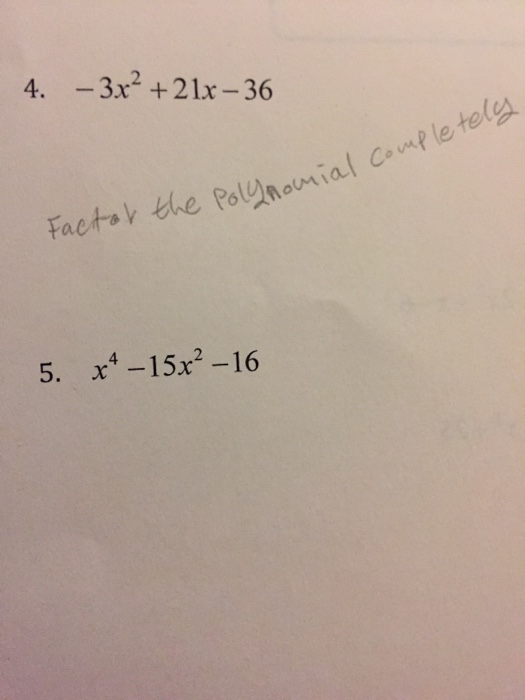 4. −3x² + 21x − 36
Factor the Polynomial completely
5. x⁴ − 15x² − 16